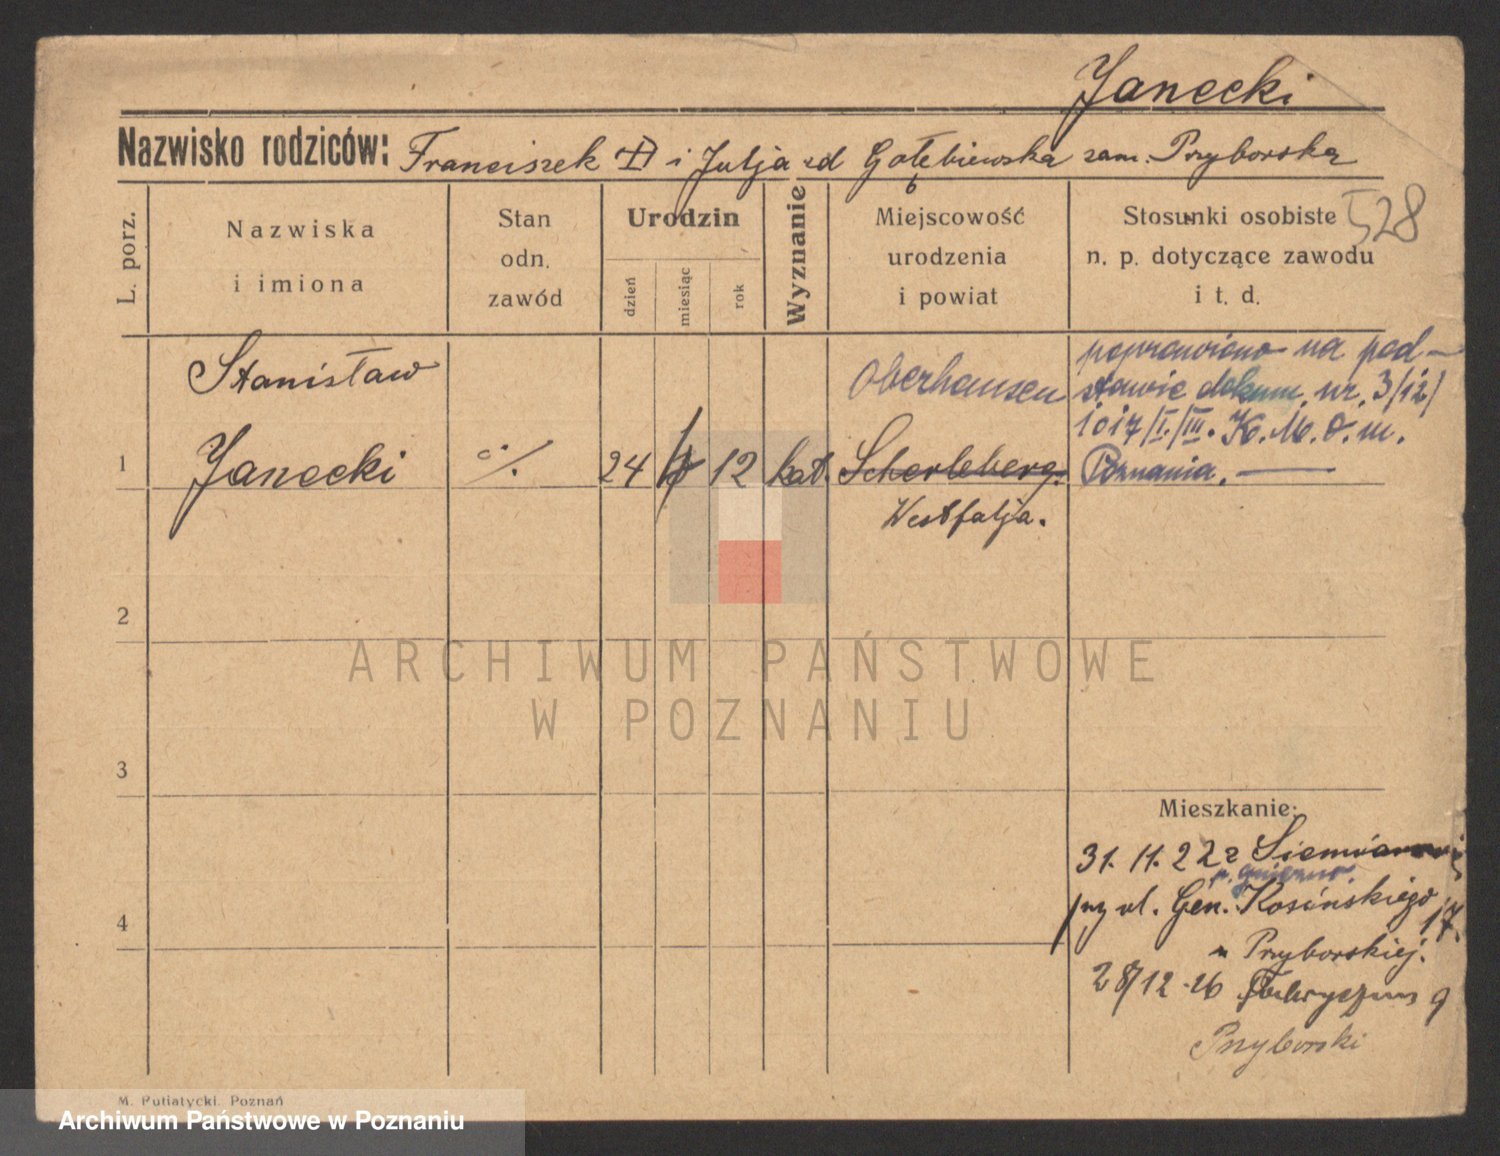 Janecki
Nazwisko rodziców: Franciszek i Julja zd Gołębiewska zam. Przyborska
L. porz.
Nazwiska
i imiona
Stan
odn.
zawód
Urodzin
dzień
miesiąc
rok
Wyznanie
Miejscowość
urodzenia
i powiat
Stosunki osobiste
n. p. dotyczące zawodu
i t. d.
528
1
Stanisław
Janecki
24
12
kat.
Oberhausen
Scherleberg.
Westfalja.
poprawiono na pod-
stawie dokum. nr. 3/12/
1017/I./III. K.M.O.m.
Poznania.
2
3
4
Mieszkanie:
31.11.22 z
p. Gniezno.
przy ul. Gen. Kosińskiego 17.
u Przyborskiej.
28/12.26 9
Przyborski
M. Putiatycki, Poznań
ARCHIWUM PAŃSTWOWE
W POZNANIU
Archiwum Państwowe w Poznaniu